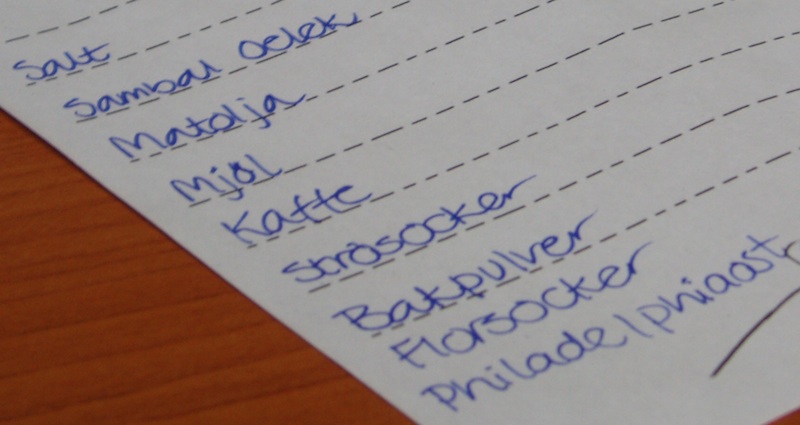 Salt
Sambal Oelek
Matolja
Mjöl
Kaffe
Strösocker
Bakpulver
Florsocker
Philadelphiaost